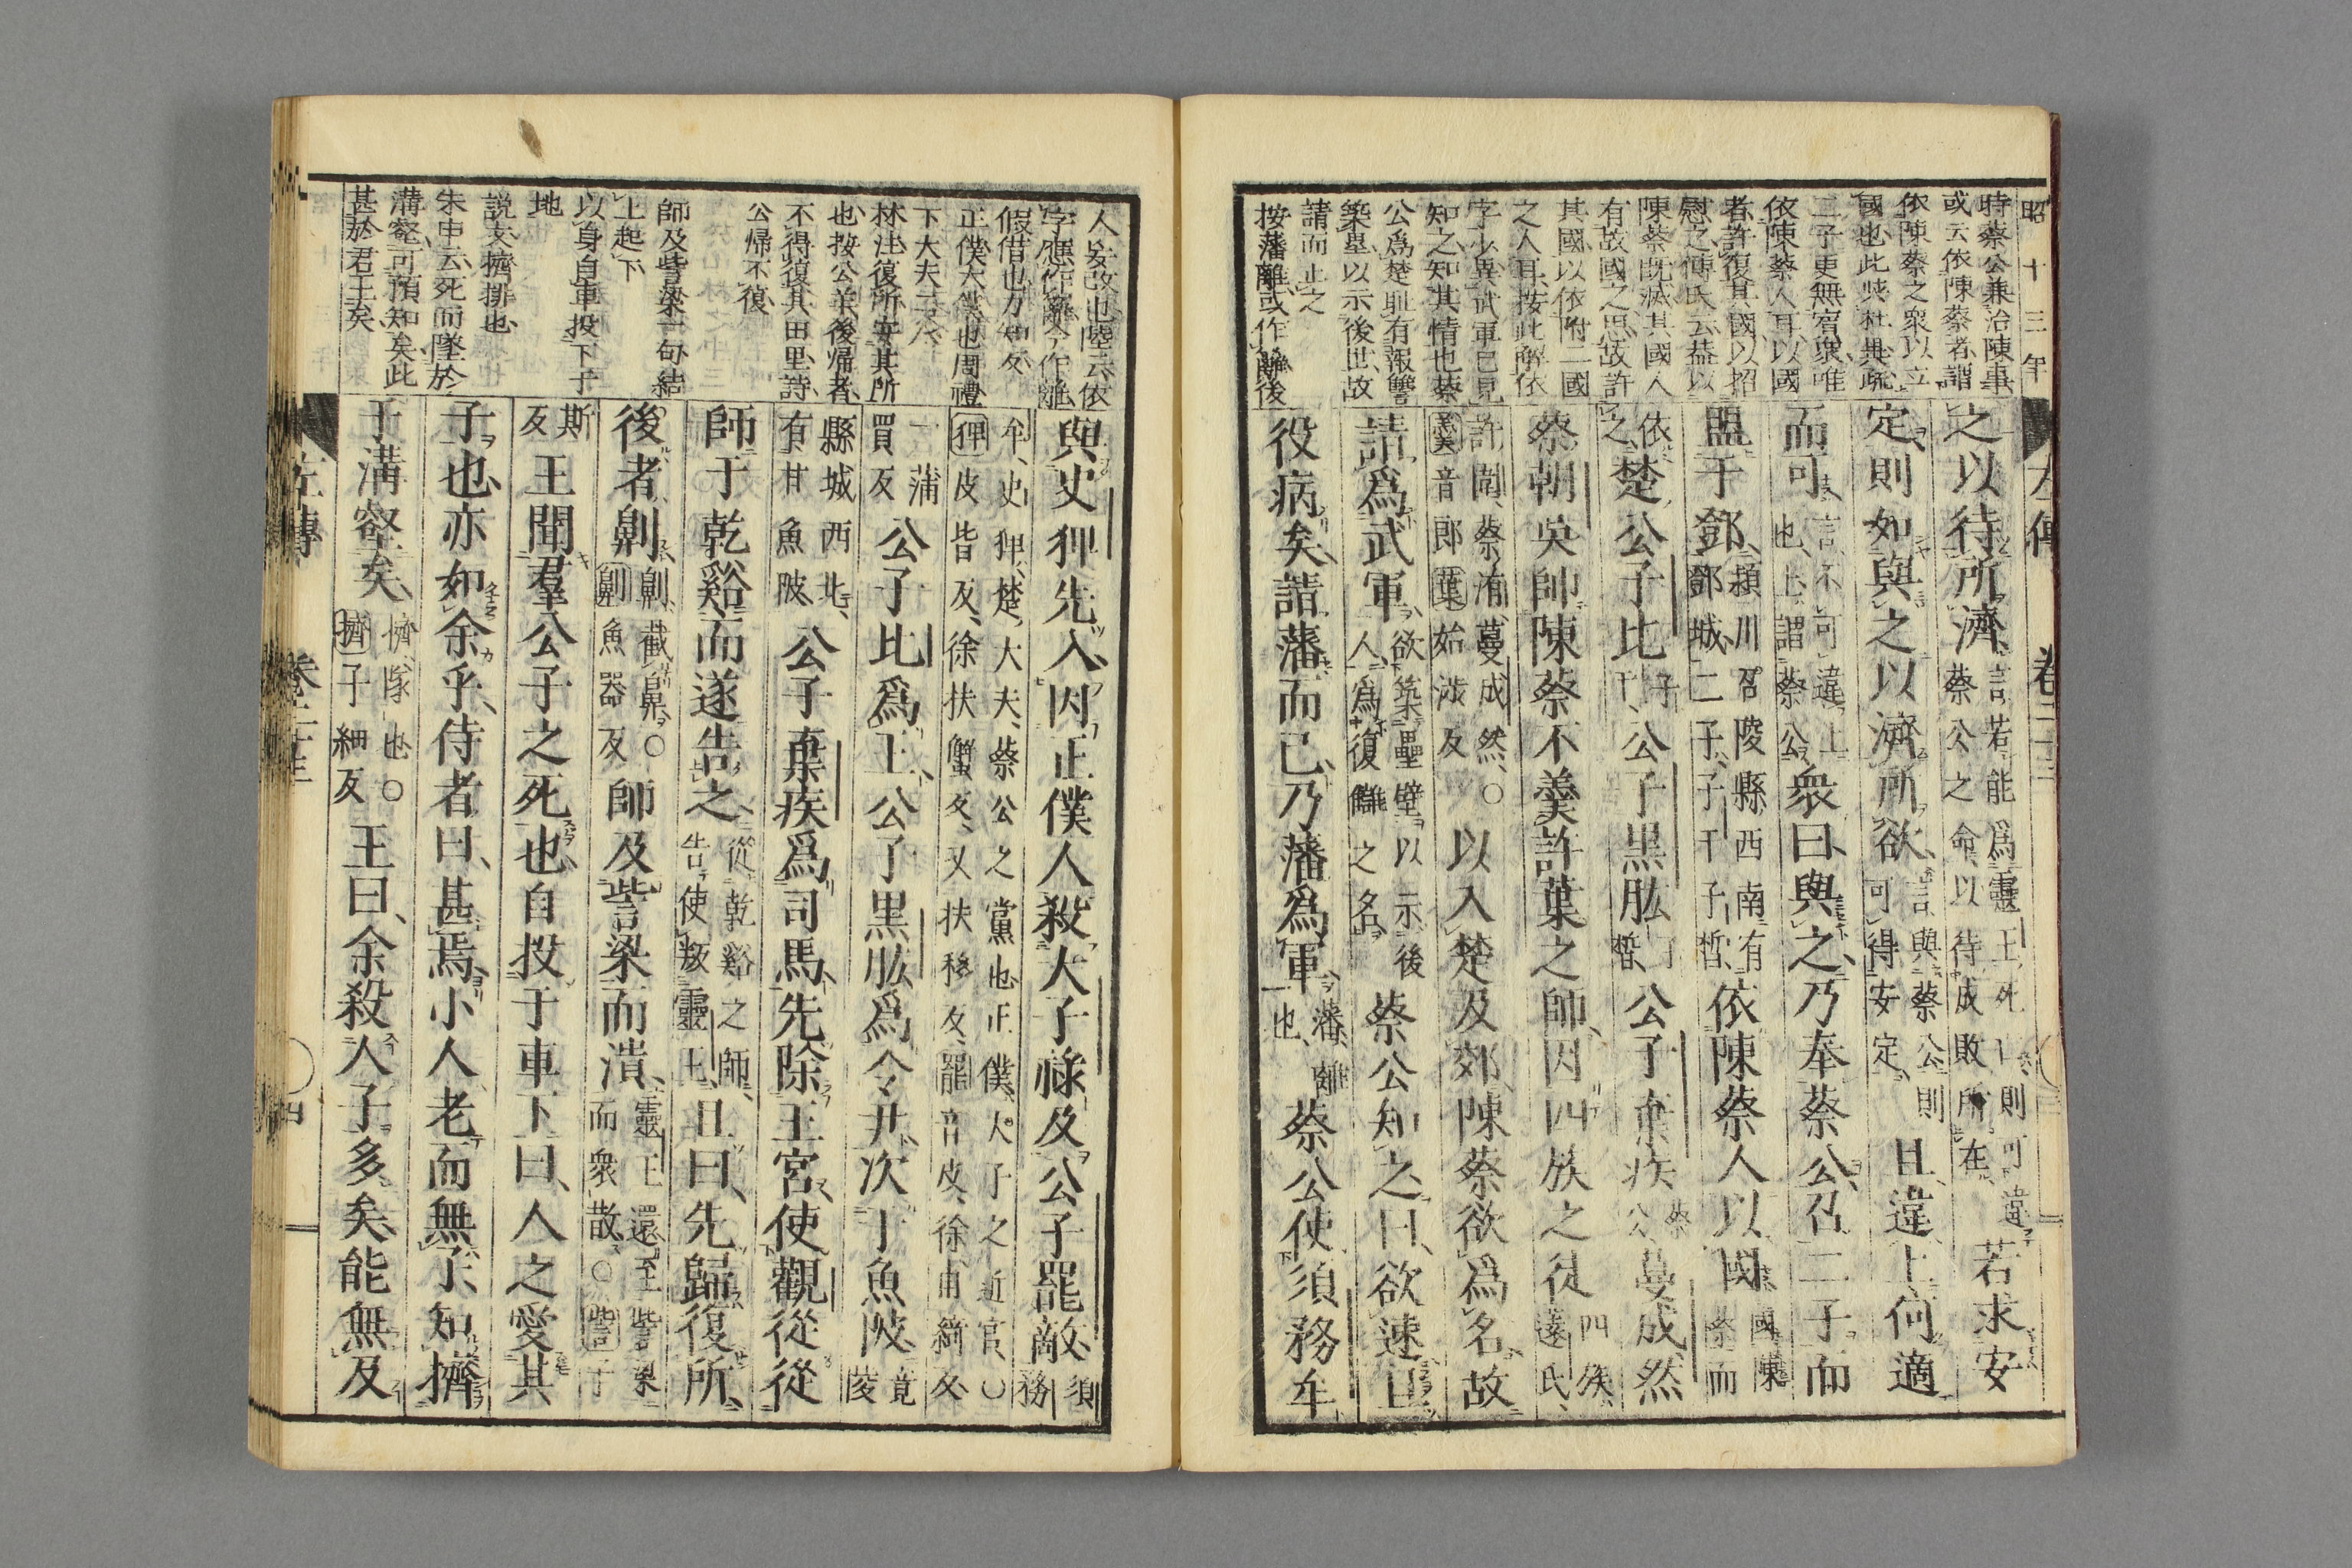 昭十三年
時蔡公兼治陳事
或云依陳蔡者謂
依陳蔡之衆以立
國也此與杜異疏
二子更無宿衆唯
依陳蔡人耳以國
者許復其國以招
慰之傳氏云蓋以
陳蔡既滅其國人
有故國之思故許
其國以依附二國
之人耳按此解依
字少異武軍已見
知之知其情也蔡
公爲楚耻有報讐
築壘以示後世故
請而止之
按藩離或作籬後
左傳 卷二十三
之以待所濟言若能爲靈王死則可違
蔡公之命以待成敗所在若求安
定則如與之以濟所欲言與蔡公則
可得安定且違上何適
而可言不可違上
也上謂蔡公衆曰與之乃奉蔡公召二子而
盟于鄧潁川召陵縣西南有
鄧城二子子干子晳依陳蔡人以國國陳
蔡而
依
之楚公子比子
干公子黑肱子
晳公子棄疾蔡
公蔓成然
蔡朝吳帥陳蔡不羹許葉之師因四族之徒四族
薳氏
許圍蔡洧蔓成然○
羹音郎葉始涉反以入楚及郊陳蔡欲爲名故
請爲武軍欲築壘壁以示後
人爲復讎之名蔡公知之曰欲速且
役病矣請藩而已乃藩爲軍藩離
也蔡公使須務牟
人妄改也盬云依
字應作籬今作離
假借也力知反
正僕大僕也周禮
下大夫二人
林注復所安其所
也按公羊後歸者
不得復其田里詩
公歸不復
師及訾梁一句結
上起下
以身自車投下于
地
説文擠排也
朱申云死而墜於
溝壑可預知矣此
甚於君王矣
與史猈先入因正僕人殺大子祿及公子罷敵須
務
牟史猈楚大夫蔡公之黨也正僕大子之近官○
猈皮皆反徐扶蟹反又扶移反罷音皮徐甫綺反
一蒲
買反公子比爲王公子黑肱爲令尹次于魚陂竟
陵
縣城西北
有甘魚陂公子棄疾爲司馬先除王宮使觀從從
師于乾谿而遂告之從乾谿之師
告使叛靈王且曰先歸復所
後者劓劓截鼻○
劓魚器反師及訾梁而潰靈王還至訾梁
而衆散○訾子
斯
反王聞羣公子之死也自投于車下曰人之愛其
子也亦如余乎侍者曰甚焉小人老而無子知擠
于溝壑矣擠隊也○
擠子細反王曰余殺人子多矣能無及
左傳 卷二十三 四